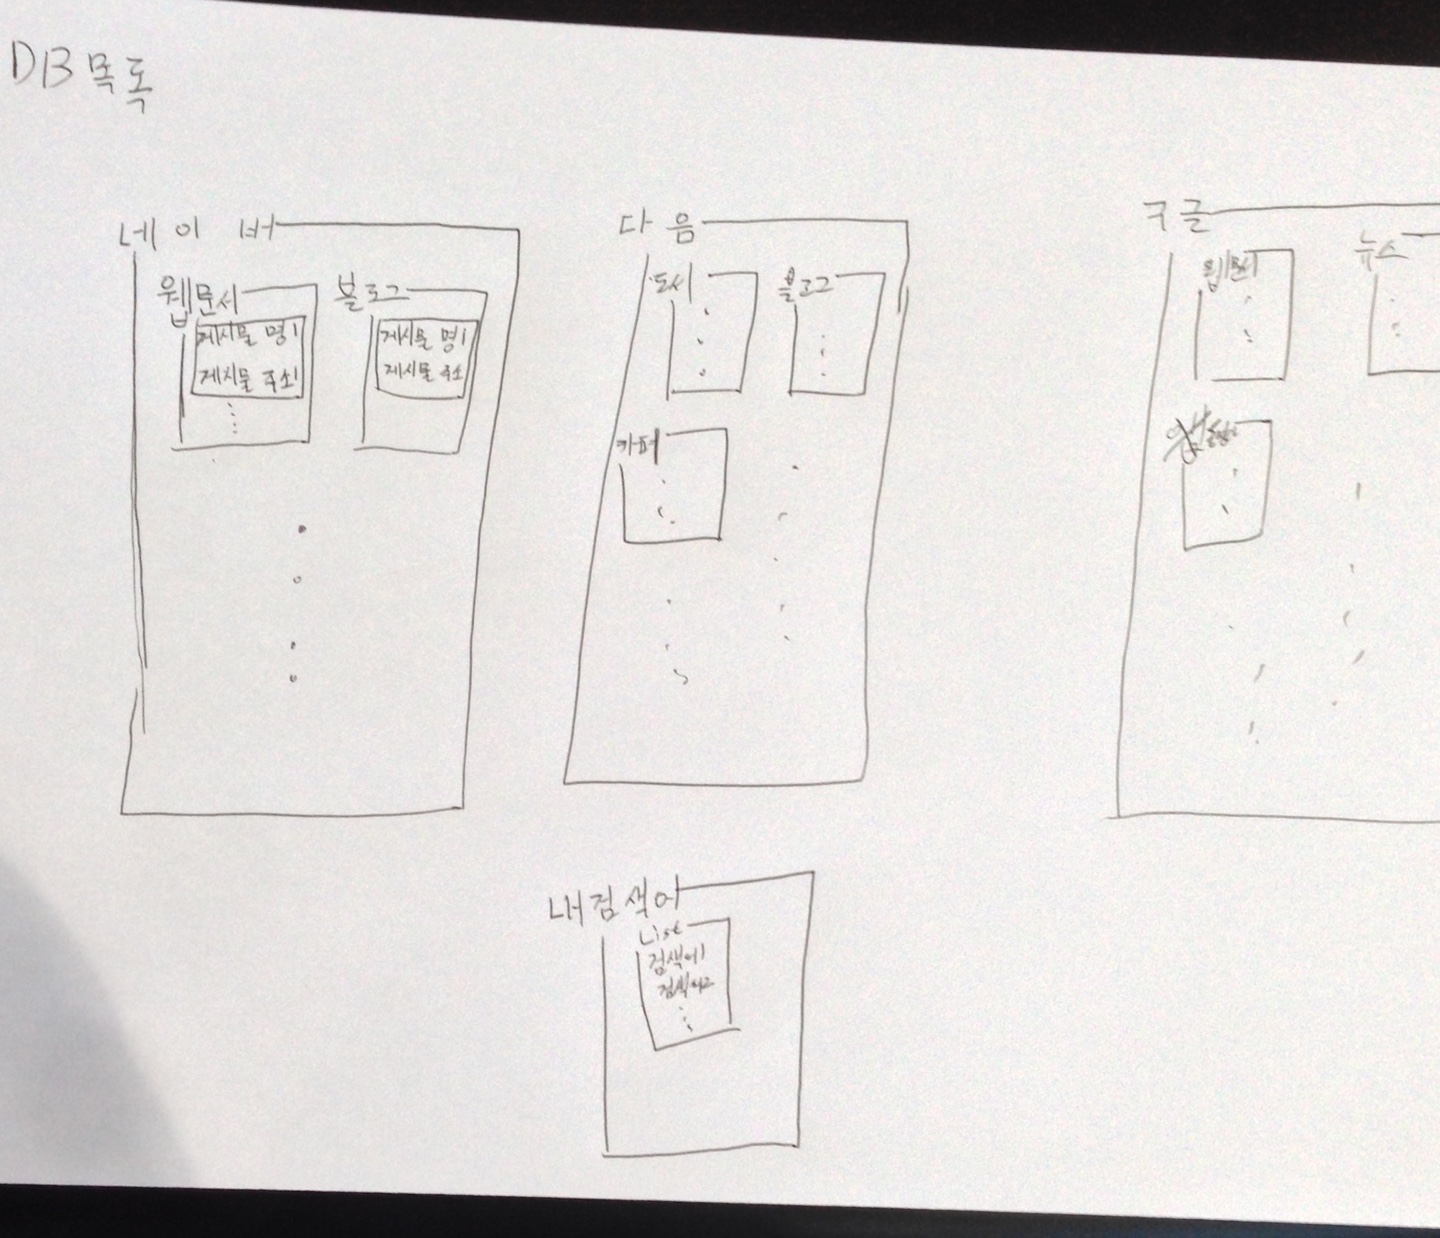 DB목록
네이버
웹문서
게시물 명1
게시물 주소1
블로그
게시물 명1
게시물 주소
다음
도서
블로그
카페
구글
웹문서
뉴스
내검색어
List
검색어1
검색어2